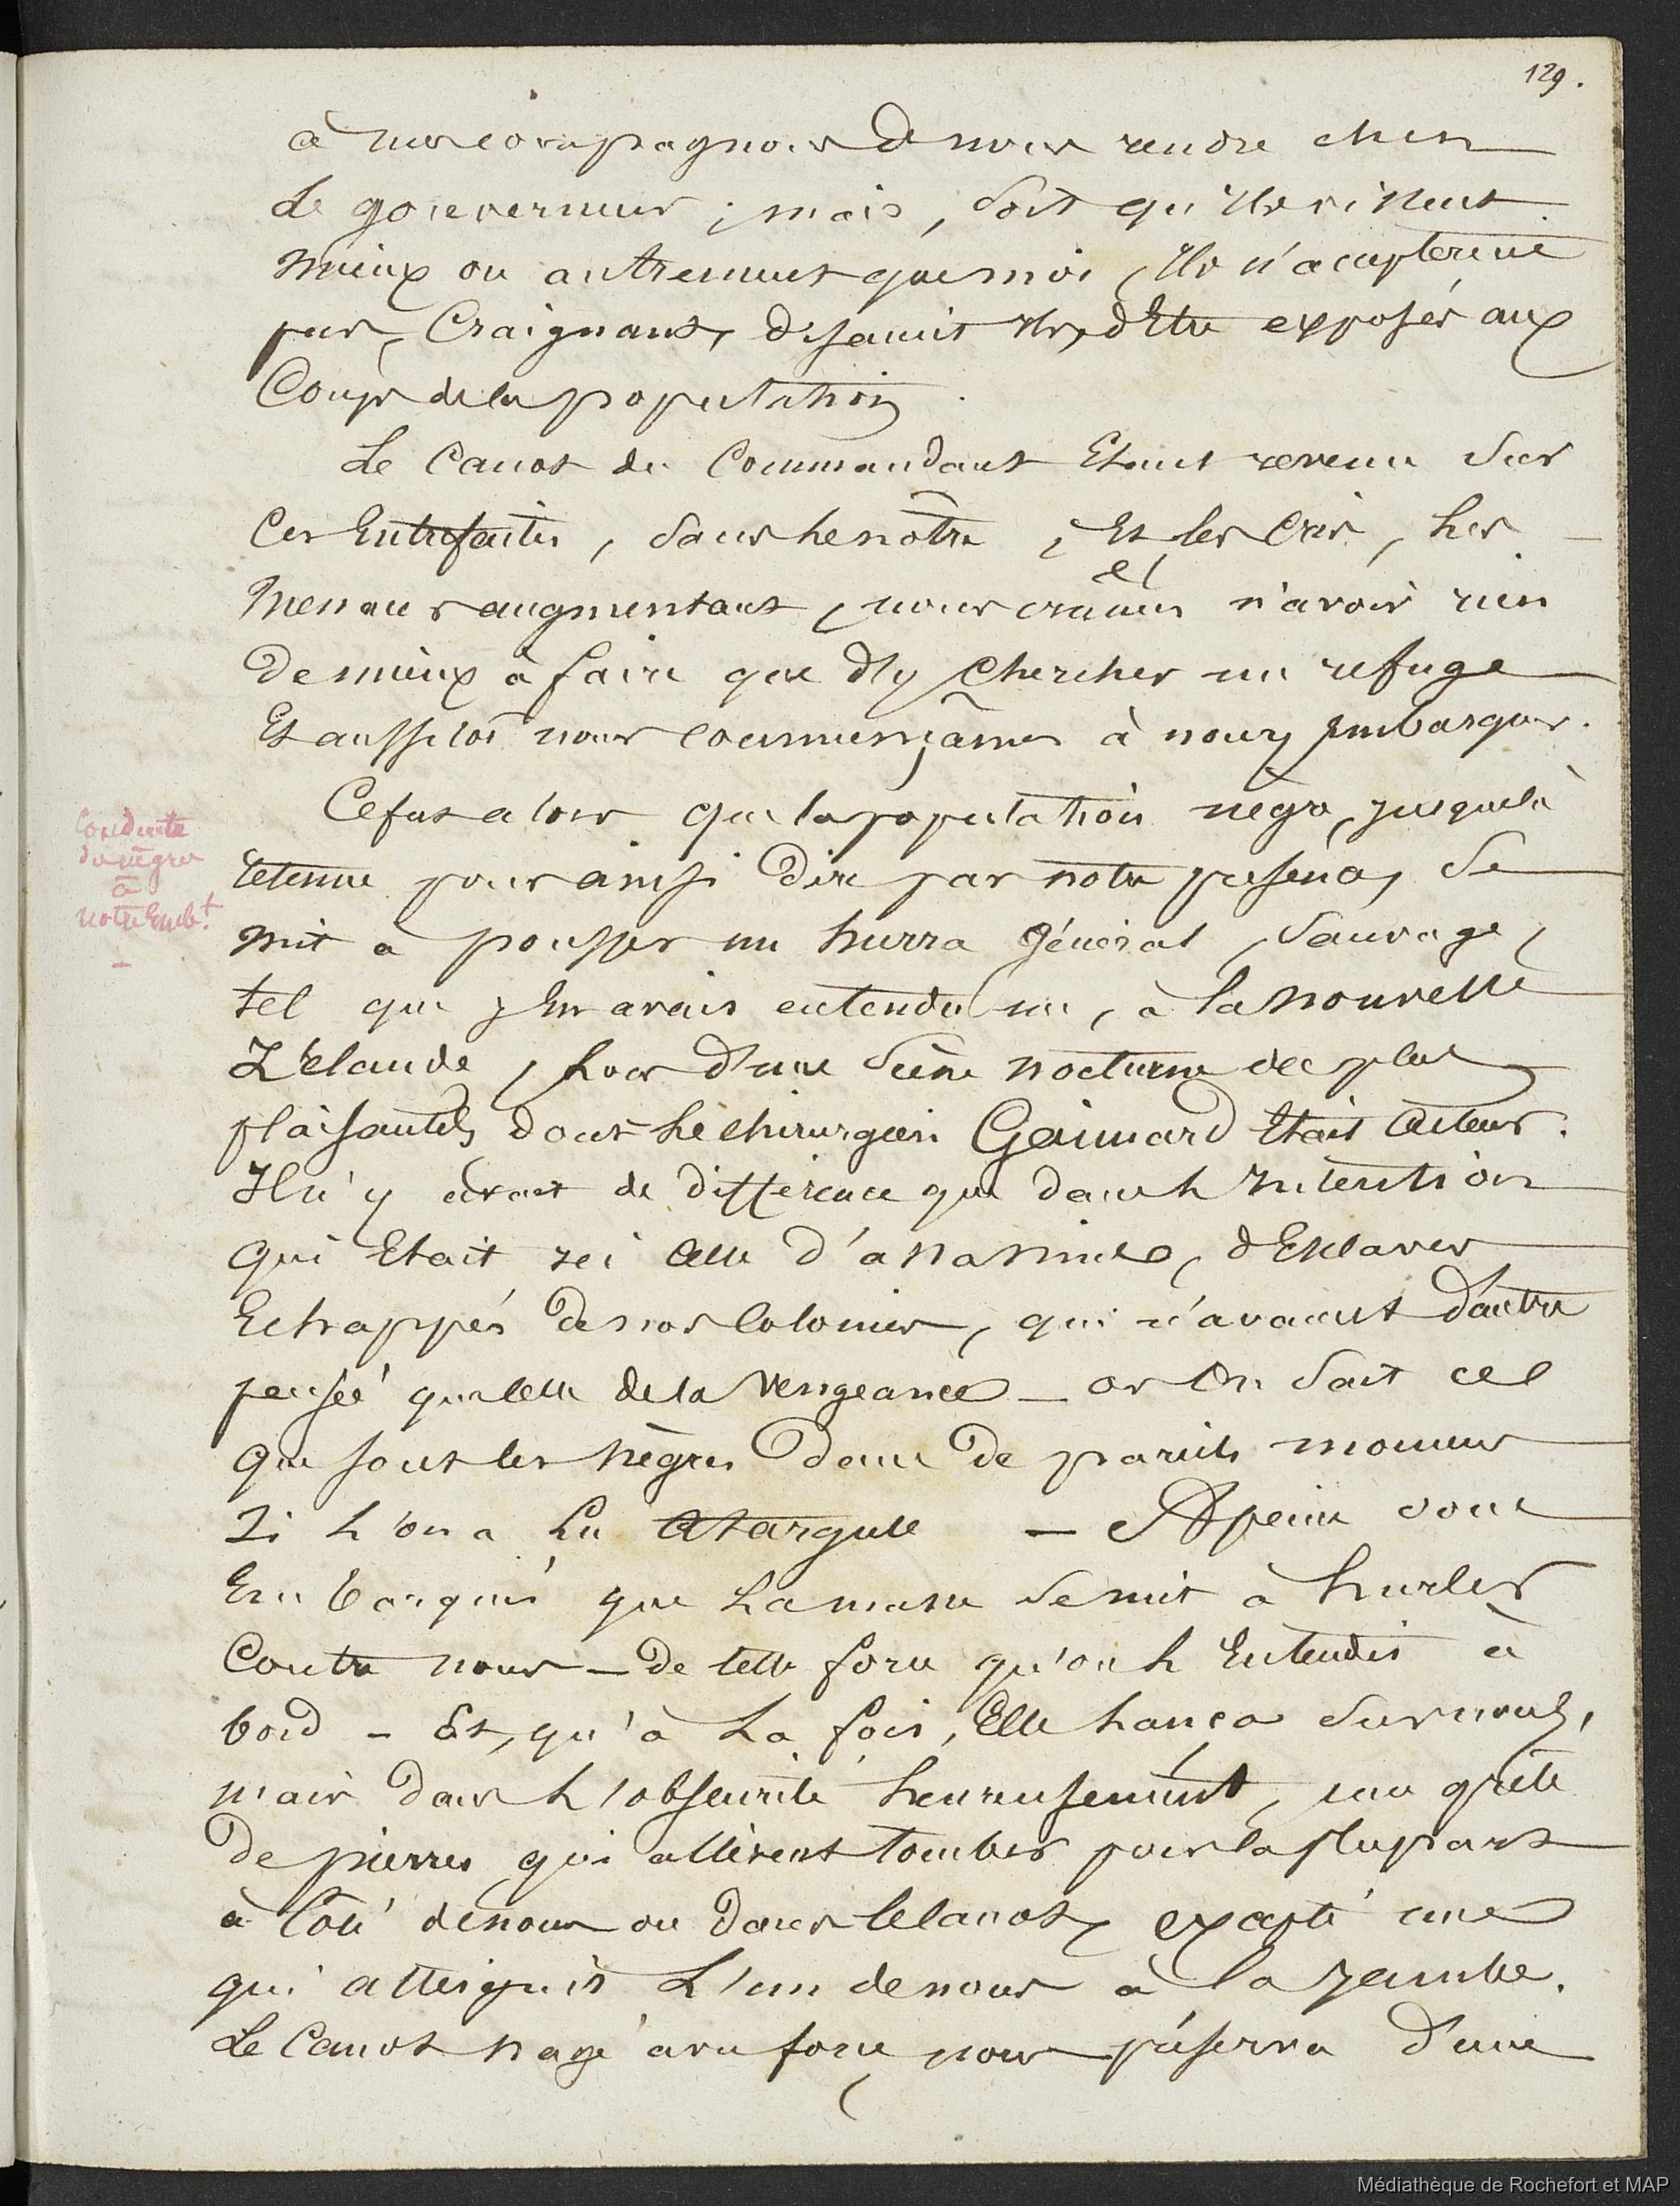 129.
à mes compagnons de nous rendre chez
Le gouverneur ; mais, soit qu'ils vissent
mieux ou autrement que moi, ils n'acceptèrent
pas, Craignant, disaient ils, d'Etre exposés aux
Coups de la population.
Le Canot du Commandant Etant revenu sur
Ces Entrefaites, sans le notre, Et les Cris, les
menaces augmentant, nous crûmes n'avoir rien
de mieux à faire que d'y chercher un refuge
Et aussitôt nous commençâmes à nous y Embarquer.
Ce fut alors que la population nègre, jusque là
retenue pour ainsi dire par notre présence, se
mit à pousser un hurra général, sauvage,
tel que j'en avais entendu un, à la nouvelle
Zélande, hors d'une scène nocturne des plus
plaisantes, dont le chirurgien Gaimard Etait acteur.
Il n'y avait de différence que dans l'Intention
qui Etait ici celle d'anassinats, d'Esclaves
Echappés de nos Colonies, qui n'avaient d'autre
pensée que celle de la vengeance — or on sait ce
que sont les nègres dans de pareils moments
si l'on a lu Atargule — A peine donc
Embarqués que la masse se mit à hurler
Contre nous — de telle force qu'on l'Entendit à
bord — Et, qu'à la fois, Elle lança sur nous,
mais dans l'obscurité heureusement, une grêle
de pierres qui allèrent tomber pour la plupart
à Côté de nous ou dans le canot, excepté une
qui atteignit L'un de nous à la Jambe.
Le Canot nagé avec force nous préserva d'une
Conduite
des nègres
à
notre Emb.t
—